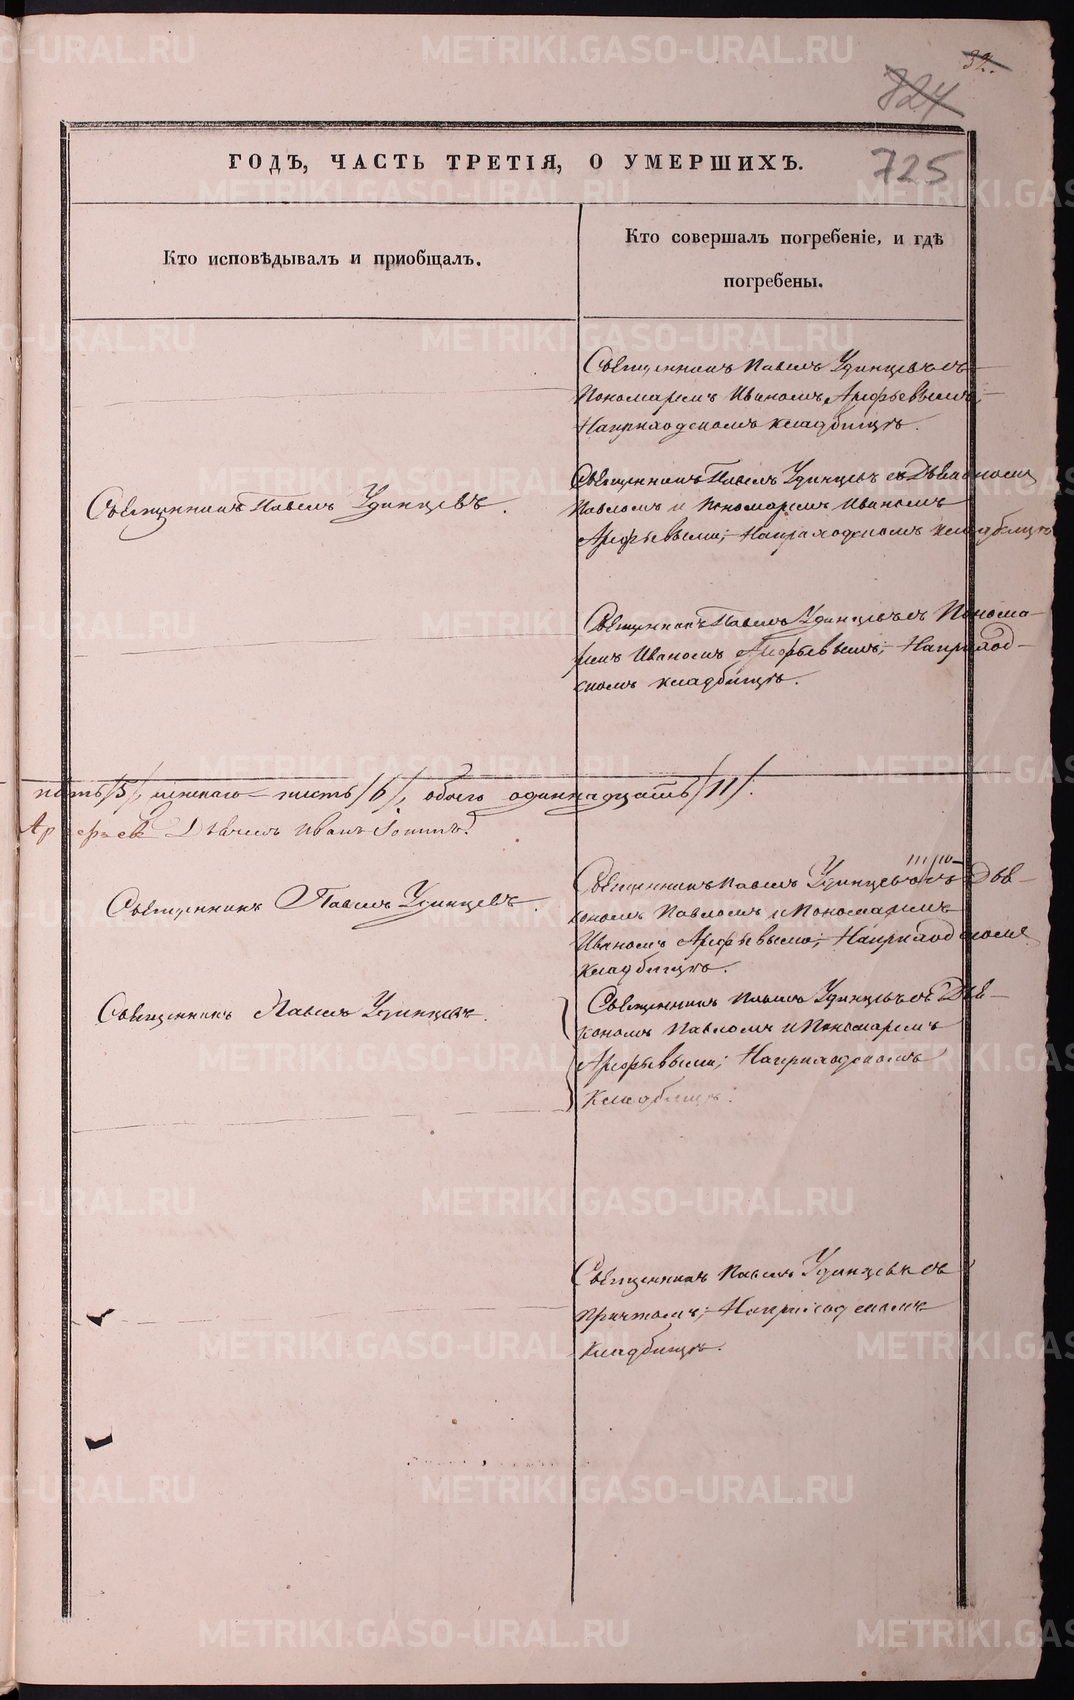 32.
824
725
ГОДЪ, ЧАСТЬ ТРЕТІЯ, О УМЕРШИХЪ.
Кто исповѣдывалъ и пріобщалъ.
Кто совершалъ погребеніе, и гдѣ
погребены.
Священникъ Павелъ Удинцевъ съ
Пономаремъ Иваномъ Арефьевымъ;
На приходскомъ кладбищѣ.
Священникъ Павелъ Удинцевъ.
Священникъ Павелъ Удинцевъ съ
Павломъ и Пономаремъ Иваномъ
Арефьевыми; На приходскомъ кладбищѣ
Священникъ Павелъ Удинцевъ съ Понома-
ремъ Иваномъ Арефьевымъ; На приход-
скомъ кладбищѣ.
пять /5/, женскаго - шесть /6/, обоего одиннадцать /11/.
Арефьев Иванъ
Священникъ Павелъ Удинцевъ.
Священникъ Павелъ Удинцевъ съ Дья-
кономъ Павломъ и Пономаремъ
Иваномъ Арефьевыми; На приходскомъ
кладбищѣ.
Священникъ Павелъ Удинцевъ.
Священникъ Павелъ Удинцевъ съ Дья-
кономъ Павломъ и Пономаремъ
Арефьевыми; На приходскомъ
кладбищѣ.
Священникъ Павелъ Удинцевъ съ
причтомъ; На приходскомъ
кладбищѣ.
METRIKI.GASO-URAL.RU